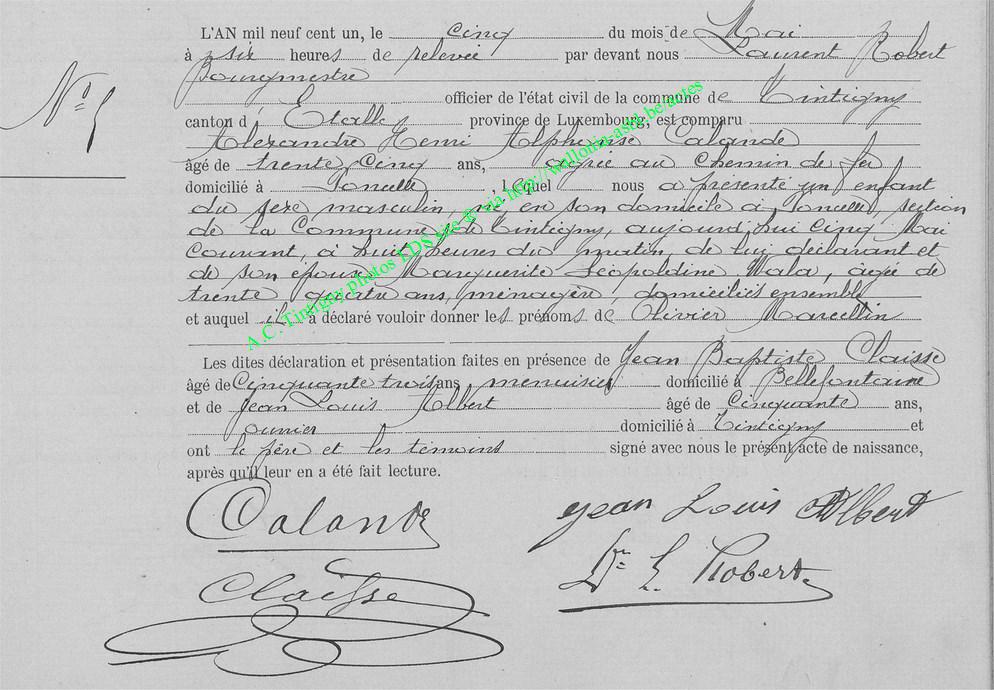 L'AN mil neuf cent un, le cinq du mois de Mai
à six heures de relevée par devant nous Laurent Robert
Bourgmestre
officier de l'état civil de la commune de Tintigny
N° 5
canton d'Etalle province de Luxembourg, est comparu
Alexandre Henri Alphonse Calande
âgé de trente cinq ans, agréé au chemin de fer
domicilié à Poncelle, lequel nous a présenté un enfant
du sexe masculin, né en son domicile à Poncelle, section
de la Commune de Tintigny, aujourd'hui cinq Mai
courant, à huit heures du matin, de lui déclarant et
de son épouse Marguerite Léopoldine Mala, âgée de
trente quatre ans, ménagère, domiciliés ensemble
et auquel il a déclaré vouloir donner les prénoms de Olivier Marcellin
Les dites déclaration et présentation faites en présence de Jean Baptiste Claisse
âgé de Cinquante trois ans menuisier domicilié à Bellefontaine
et de Jean Louis Albert âgé de cinquante ans,
ouvrier domicilié à Tintigny et
ont le père et les témoins signé avec nous le présent acte de naissance,
après qu'il leur en a été fait lecture.
Calande
Jean Louis Albert
Claisse
Dr L. Robert
A.C. Tintigny photos LDS site © via http://wallonia-asbl.be/actes